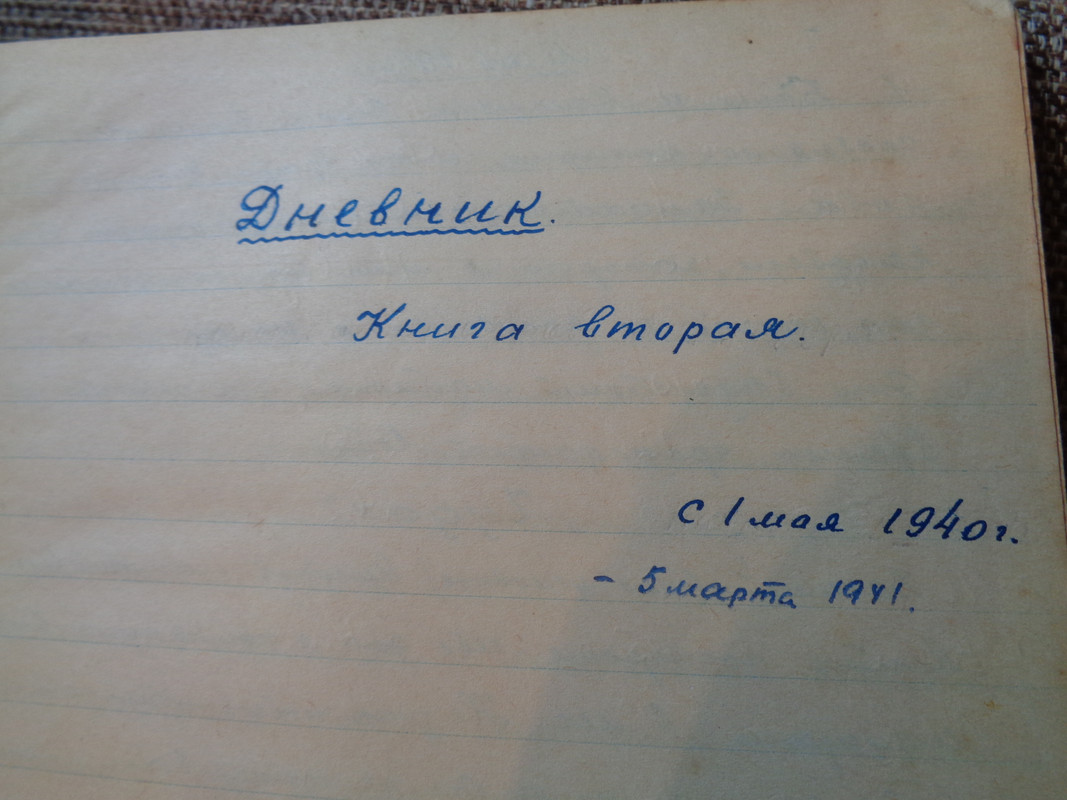 Дневник.
Книга вторая.
с 1 мая 1940 г.
- 5 марта 1941.